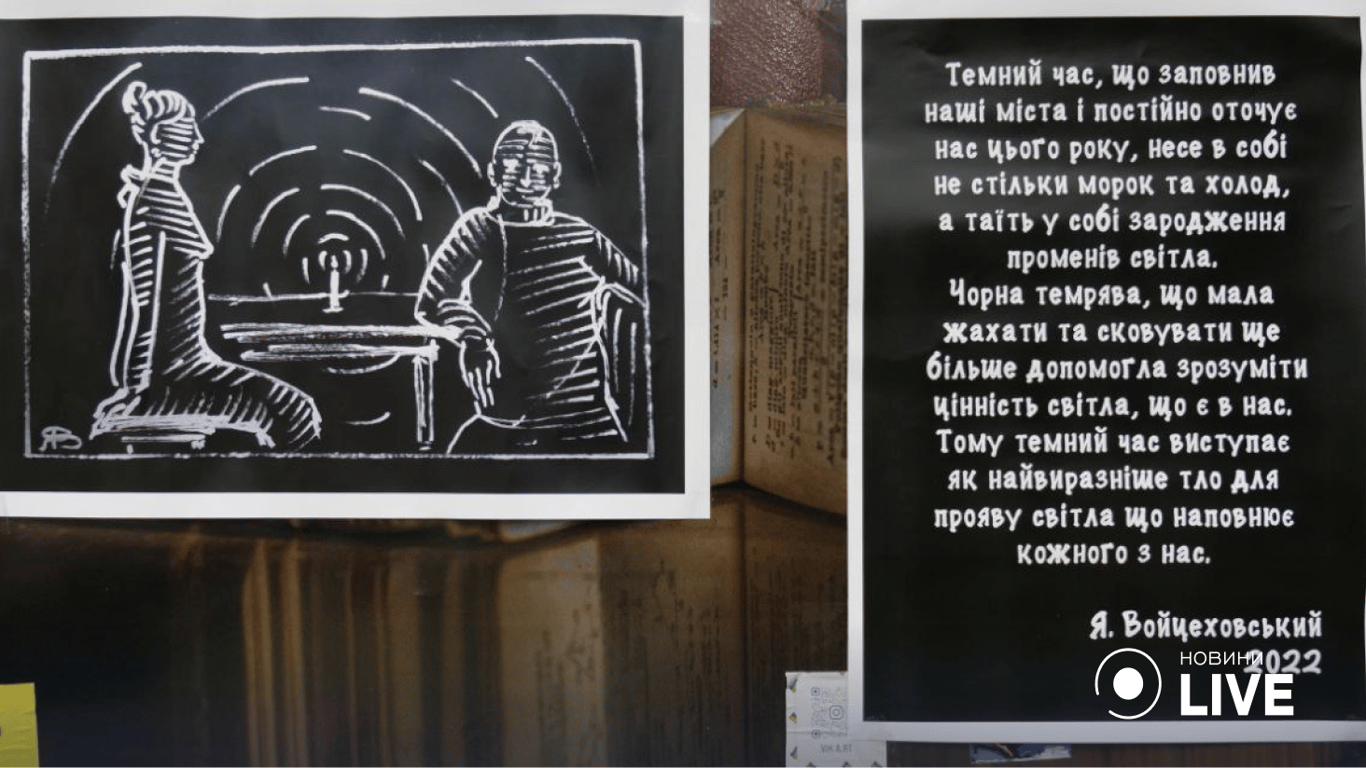 Темний час, що заповнив
наші міста і постійно оточує
нас цього року, несе в собі
не стільки морок та холод,
а таїть у собі зародження
променів світла.
Чорна темрява, що мала
жахати та сковувати ще
більше допомогла зрозуміти
цінність світла, що є в нас.
Тому темний час виступає
як найвиразніше тло для
прояву світла що наповнює
кожного з нас.
Я. Войцеховський
2022
НОВИНИ
LIVE